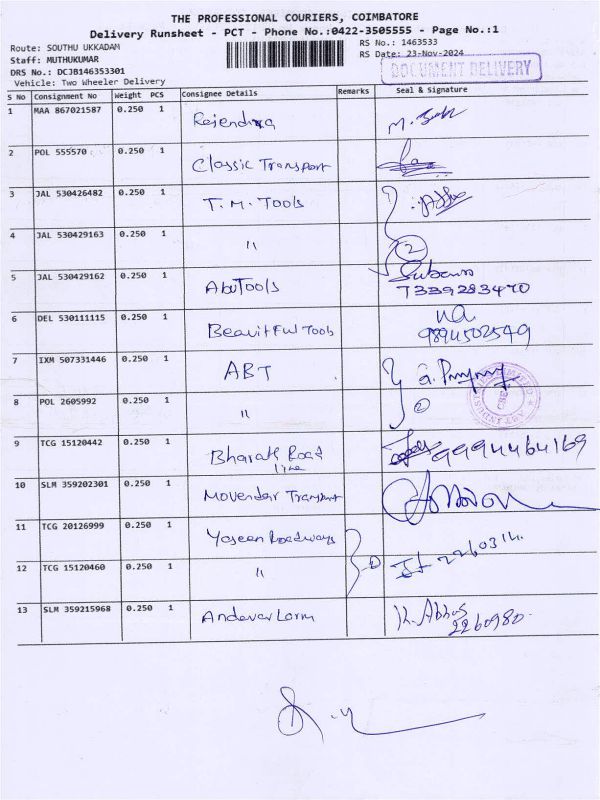 THE PROFESSIONAL COURIERS, COIMBATORE
Delivery Runsheet - PCT - Phone No.:0422-3505555 - Page No.:1
Route: SOUTHU UKKADAM
RS No.: 1463533
Staff: MUTHUKUMAR
RS Date: 23-Nov-2024
DRS No.: DCJB146353301
DOCUMENT DELIVERY
Vehicle: Two Wheeler Delivery
S No Consignment No Weight PCS Consignee Details Remarks Seal & Signature
1 MAA 867021587 0.250 1 Rajendra M.
2 POL 555570 0.250 1 Classic Transport
3 JAL 530426482 0.250 1 T.M. Tools
4 JAL 530429163 0.250 1 " 2
5 JAL 530429162 0.250 1 Abu Tools
7339283470
6 DEL 530111115 0.250 1 Beautiful Tools
9894502549
7 IXM 507331446 0.250 1 ABT
8 POL 2605992 0.250 1 " 2
9 TCG 15120442 0.250 1 Bharath Road 9994464169
line
10 SLM 359202301 0.250 1 Movendar Transport
11 TCG 20126999 0.250 1 Yaseen Roadways
12 TCG 15120460 0.250 1 "
13 SLM 359215968 0.250 1 Andavar Lorry K. Abbas
2260980